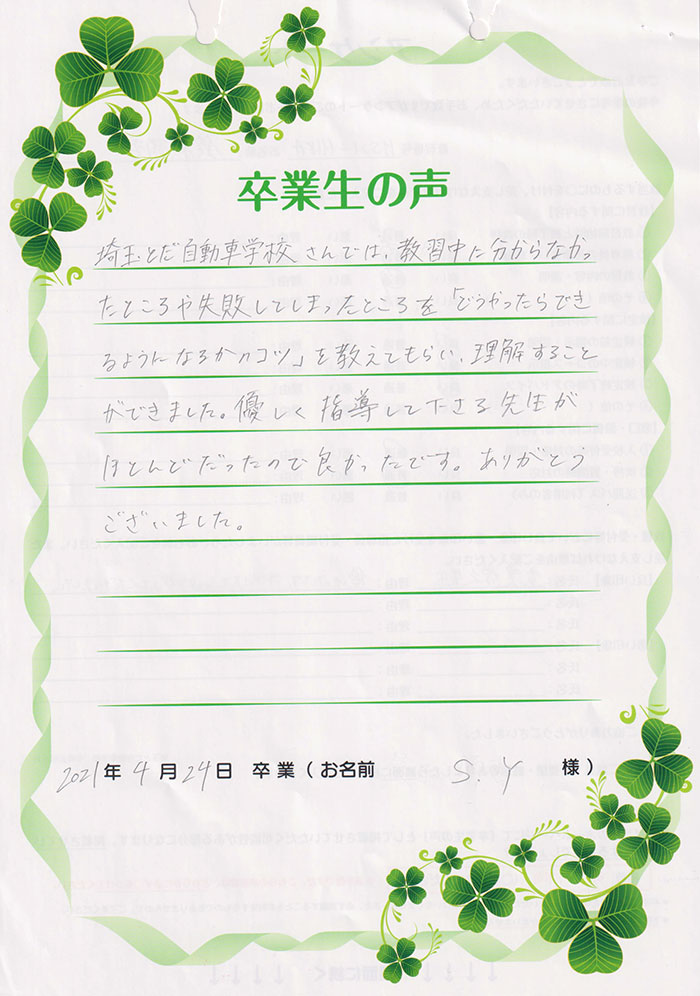 卒業生の声
埼玉とだ自動車学校さんでは、教習中に分からなかっ
たところや失敗してしまったところを「どうやったらでき
るようになるかのコツ」を教えてもらい、理解すること
ができました。優しく指導して下さる先生が
ほとんどだったので良かったです。ありがとう
ございました。
2021年 4月 24日 卒業（お名前 S.Y 様）